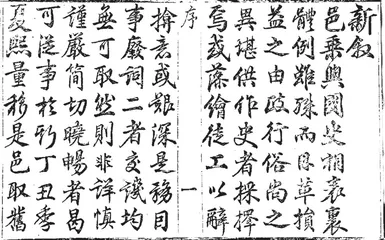 新叙
邑乘與國史相表裏
體例雖殊而因革損
益之由政行俗尚之
異堪供作史者採擇
焉或藻繪徒工以辭
序
一
揜意或艱深是務因
事廢詞二者交譏均
無可取然則非詳慎
謹嚴簡切曉暢者曷
可從事於斯丁丑季
夏熙量移是邑取舊